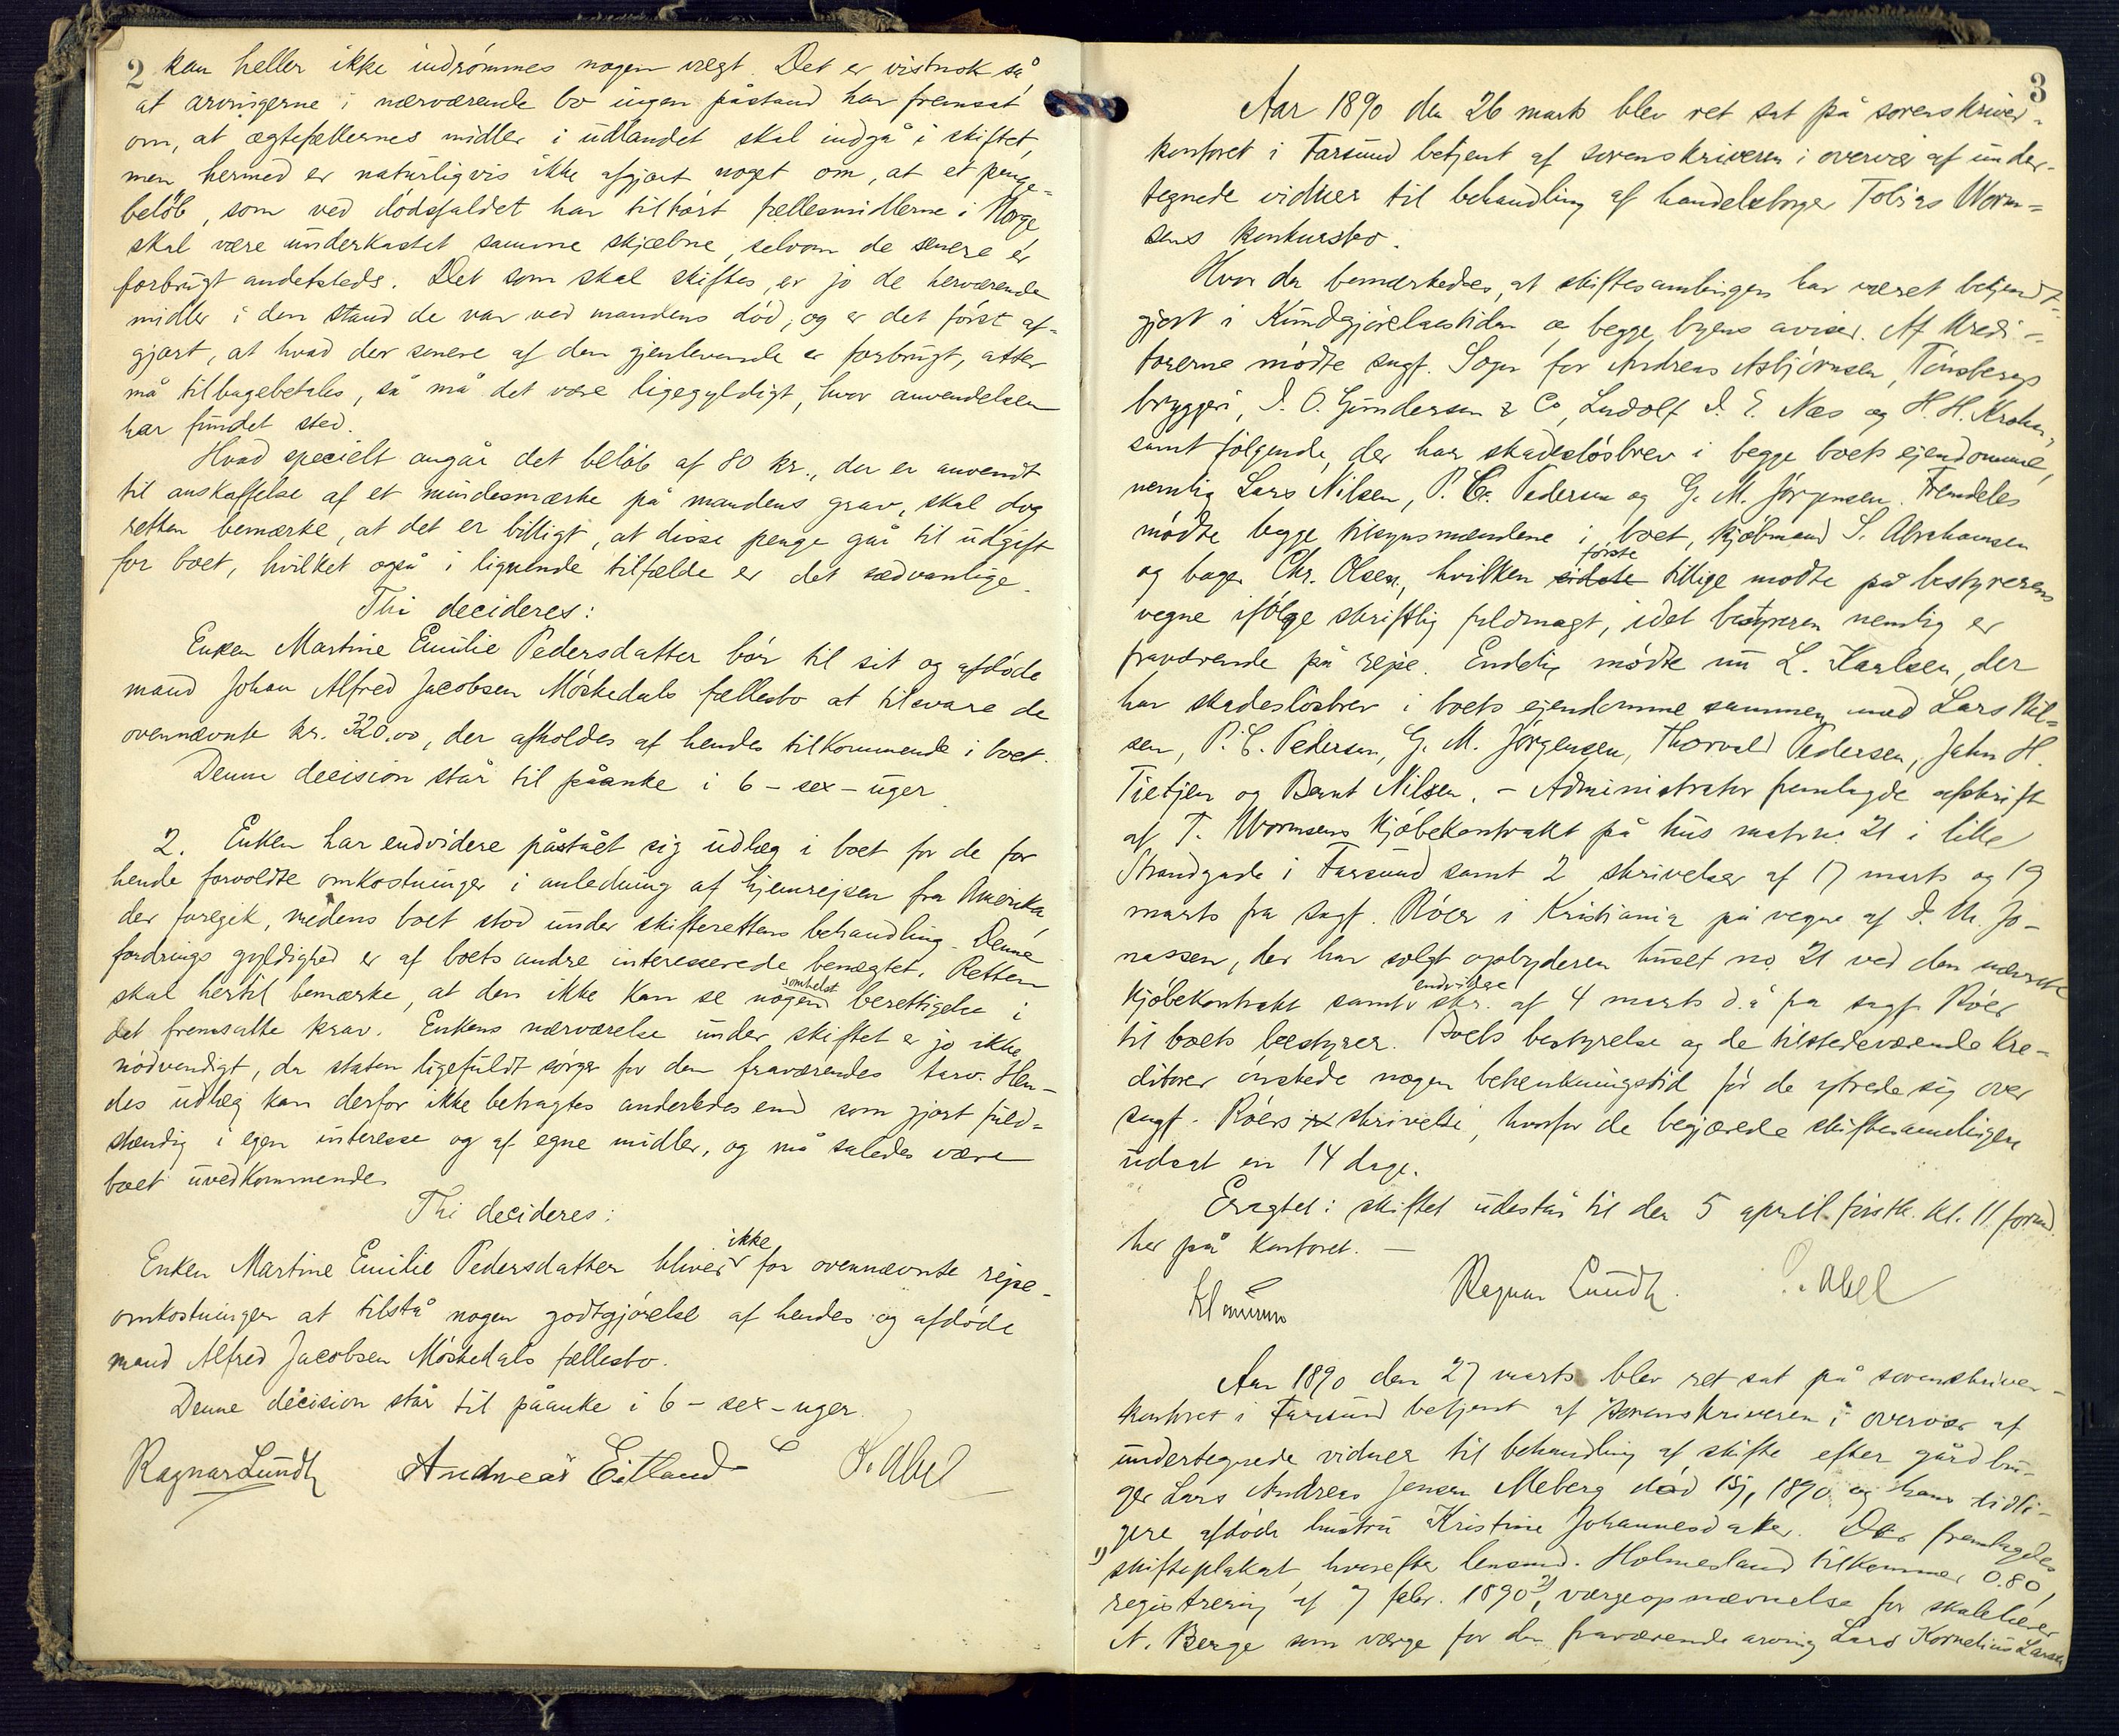 2
kan heller ikke indrömmes nogen vægt. Det er vistnok så
at arvingerne i nærværende bo ingen påstand har fremsat
om, at ægtefællernes midler i udlandet skal indgå i skiftet,
men hermed er naturligvis ikke afgjort noget om, at et penge-
beløb, som ved dödsfaldet har tilhört fællesmidlerne i Norge
skal være underkastet samme skjæbne, selvom de senere er
forbrugt andetsteds. Det som skal skiftes, er jo de herværende
midler i den stand de var ved mandens död, og er det först af-
gjort, at hvad der senere af den gjenlevende er forbrugt, atter
må tilbagebetales, så må det være ligegyldigt, hvor anvendelsen
har fundet sted.
Hvad specielt angår det belöb af 80 kr., der er anvendt
til anskaffelse af et mindesmærke på mandens grav, skal dog
retten bemærke, at det er billigt, at disse penge går til udgift
for boet, hvilket også i lignende tilfælde er det sædvanlige.
Thi decideres:
Enken Martine Emilie Pedersdatter bör til sit og afdöde
mand Johan Alfred Jacobsen Möskedals fællesbo at tilsvare de
ovennævnte kr. 320,00, der afholdes af hendes tilkommende i boet.
Denne decision står til påanke i 6 - sex - uger.
2. Enken har endvidere påstået sig udlæg i boet for de for
hende forvoldte omkostninger i anledning af hjemreisen fra Amerika,
der foregik, medens boet stod under skifterettens behandling. Denne
fordrings gyldighed er af boets andre interesserede benægtet. Retten
skal hertil bemærke, at den ikke kan se nogen somhelst berettigelse i
det fremsatte krav. Enkens nærværelse under skiftet er jo ikke
nödvendigt, da staten ligefuldt sörger for den fraværendes tarv. Hen-
des udlæg kan derfor ikke betragtes anderledes end som gjort fuld-
stændig i egen interesse og af egne midler, og må således være
boet uvedkommende.
Thi decideres:
Enken Martine Emilie Pedersdatter bliver ikke for ovennævnte rejse-
omkostninger at tilstå nogen godtgjörelse af hendes og afdöde
mand Alfred Jacobsen Möskedals fællesbo.
Denne decision står til påanke i 6 - sex - uger.
Ragnar Lundh Andreas Eitland Abel
3
Aar 1890 den 26 marts blev ret sat på sorenskriver-
kontoret i Farsund betjent af sorenskriveren i overvær af under-
tegnede vidner til behandling af handelsborger Tobias Worm-
sens konkursbo.
Hvor da bemærkedes, at skiftesamlingen har været bekjendt-
gjort i Kundgjörelsestidende og begge byens aviser. Af kredi-
torerne mödte sagf. for Andreas Asbjörnsen, Tönsbergs
bryggeri, J. O. Gundersen & Co, Ludolf J. E. Næs og H. H. Krohn,
samt fölgende, der har skadeslösbrev i begge boets ejendomme,
nemlig Lars Nilsen, P. C. Pedersen og G. M. Jörgensen. Fremdeles
mödte begge tilsynsmændene i boet, kjöbmand S. Abrahamsen
og bager Chr. Olsen, hvilken sidste förste tillige mödte på bestyrerens
vegne ifölge skriftlig fuldmagt, idet bestyreren nemlig er
fraværende på rejse. Endelig mödte nu L. Karlsen, der
har skadeslösbrev i boets ejendomme sammen med Lars Nil-
sen, P. C. Pedersen, G. M. Jörgensen, Thorvald Pedersen, John H.
Tietjen og Bernt Nilsen. - Administrator fremlagde afskrift
af T. Wormsens kjöbekontrakt på hus matr. no. 21 i lille
Strandgade i Farsund samt 2 skrivelser af 17 marts og 19
marts fra sagf. Röer i Kristiania på vegne af J. M. Jo-
nassen, der har solgt opbyderen huset no. 21 ved den nævnte
kjöbekontrakt samt endvidere skr. af 4 marts d.å fra sagf. Röer
til boets bestyrer. Boets bestyrelse og de tilstedeværende kre-
ditorer önskede nogen betænkningstid för de ytrede sig over
sagf. Röers skrivelse, hvorfor de begjærede skiftesamlingen
udsat en 14 dage.
Eragtet: skiftet udestår til den 5 april förstk. kl. 11 formd.
her på kontoret. -
Ragnar Lundh. Abel
Aar 1890 den 27 marts blev ret sat på sorenskriver-
kontoret i Farsund betjent af sorenskriveren i overvær af
undertegnede vidner til behandling af skifte efter gårdbru-
ger Lars Andreas Jensen Meberg död 15/1 1890 og hans tidli-
gere afdöde hustru Kristine Johannesdatter. Der fremlagdes
1) skifteplakat, hvorefter lensmd. Holmesland tilkommer 0.80,
registrering af 7 febr. 1890, 2) værgeopnævnelse for skolelærer
N. Berge som værge for den fraværende arving Lars Kornelius Larsen